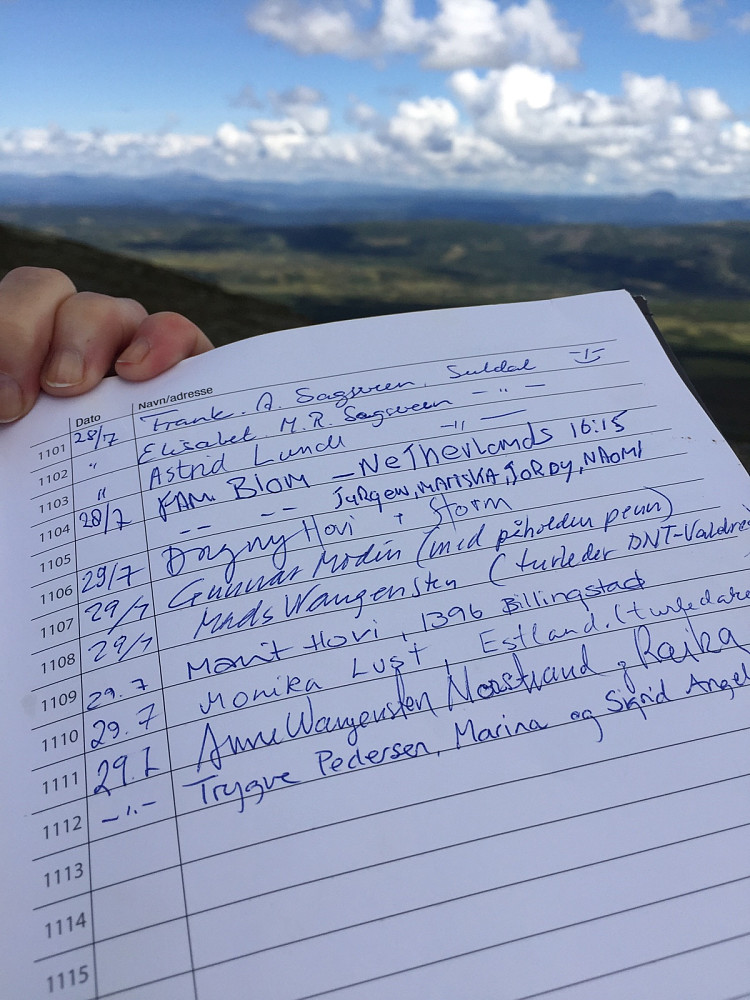 Dato Navn/adresse
1101 28/7 Frank. A. Sagsveen, Suldal
1102 " Elisabet M.R. Sagsveen - " -
1103 " Astrid Lunde - " -
1104 28/7 FAM. Blom - Netherlands 16:15
1105 -- -- Jurgen, MARISKA, JORDY, NAOMI
1106 29/7 Dagny Hovi + Storm
1107 29/7 Gunnar Modin (med påholden penn)
1108 29/7 Mads Wangensten (turleder DNT-Valdres
1109 29.7 Marit Hovi, 1396 Billingstad
1110 29.7 Monika Lust, Estland. (turledare
1111 29.7 Anne Wangensten Norstrand og Raika
1112 -"- Trygve Pedersen, Marina og Sigrid Angel
1113
1114
1115